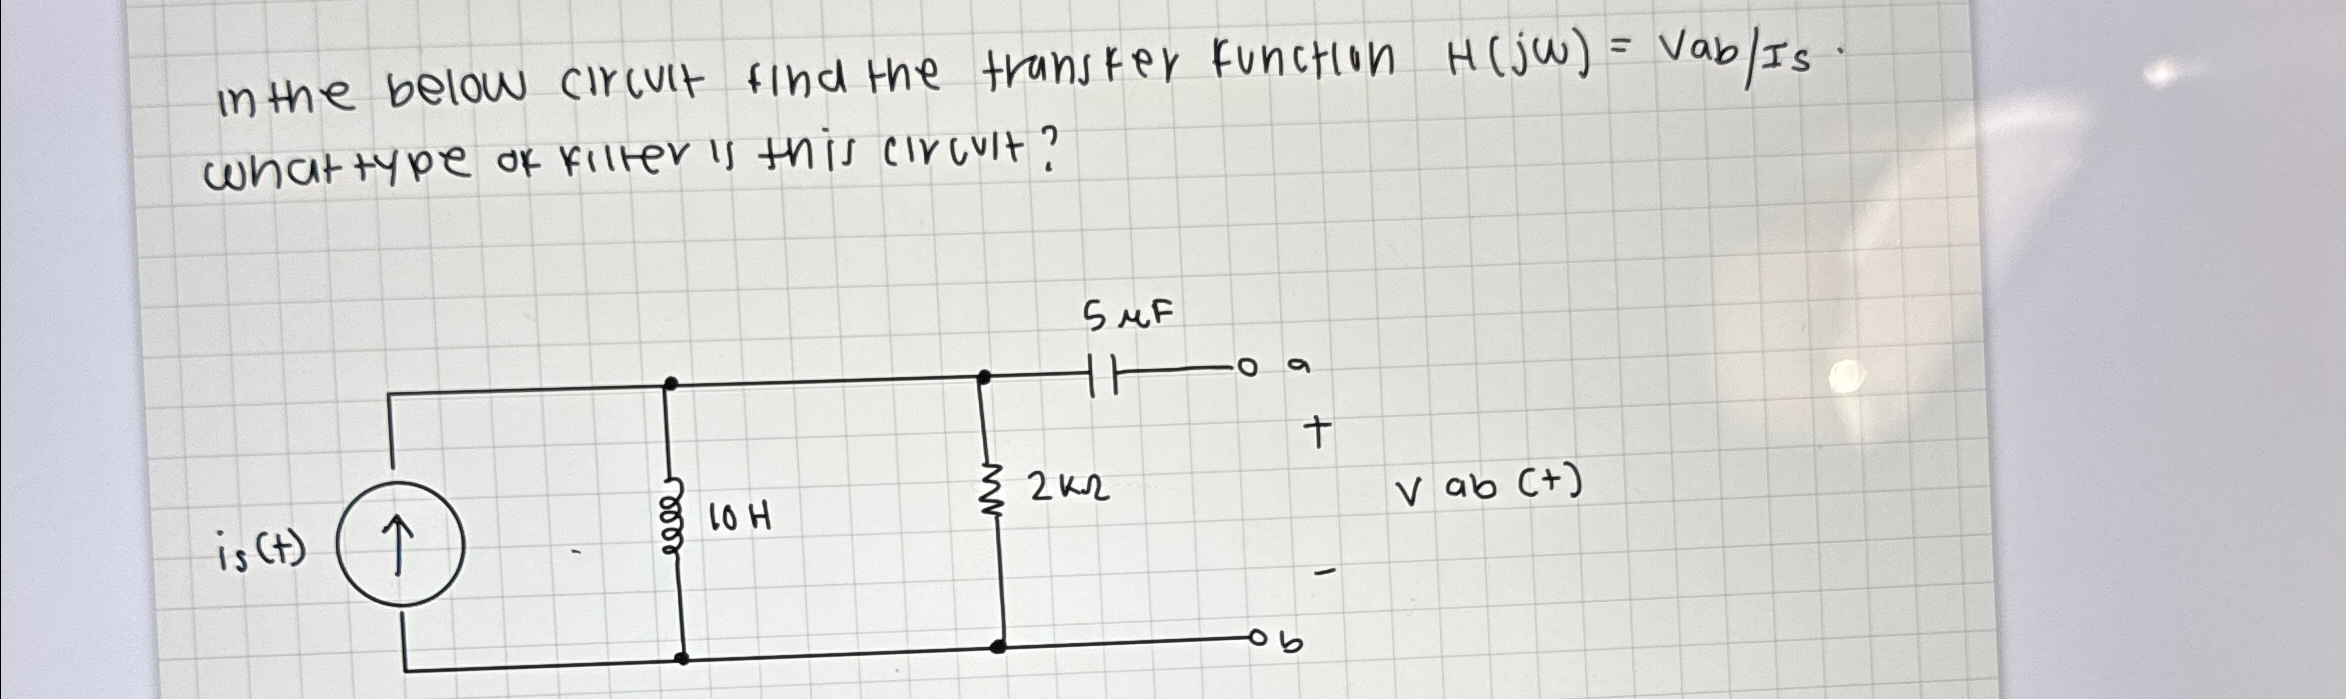 in the below circuit find the transfer function H(jω) = Vab/Is.
what type of filter is this circuit?
5 μF
a
+
2kΩ
v ab (t)
10 H
is(t)
-
b